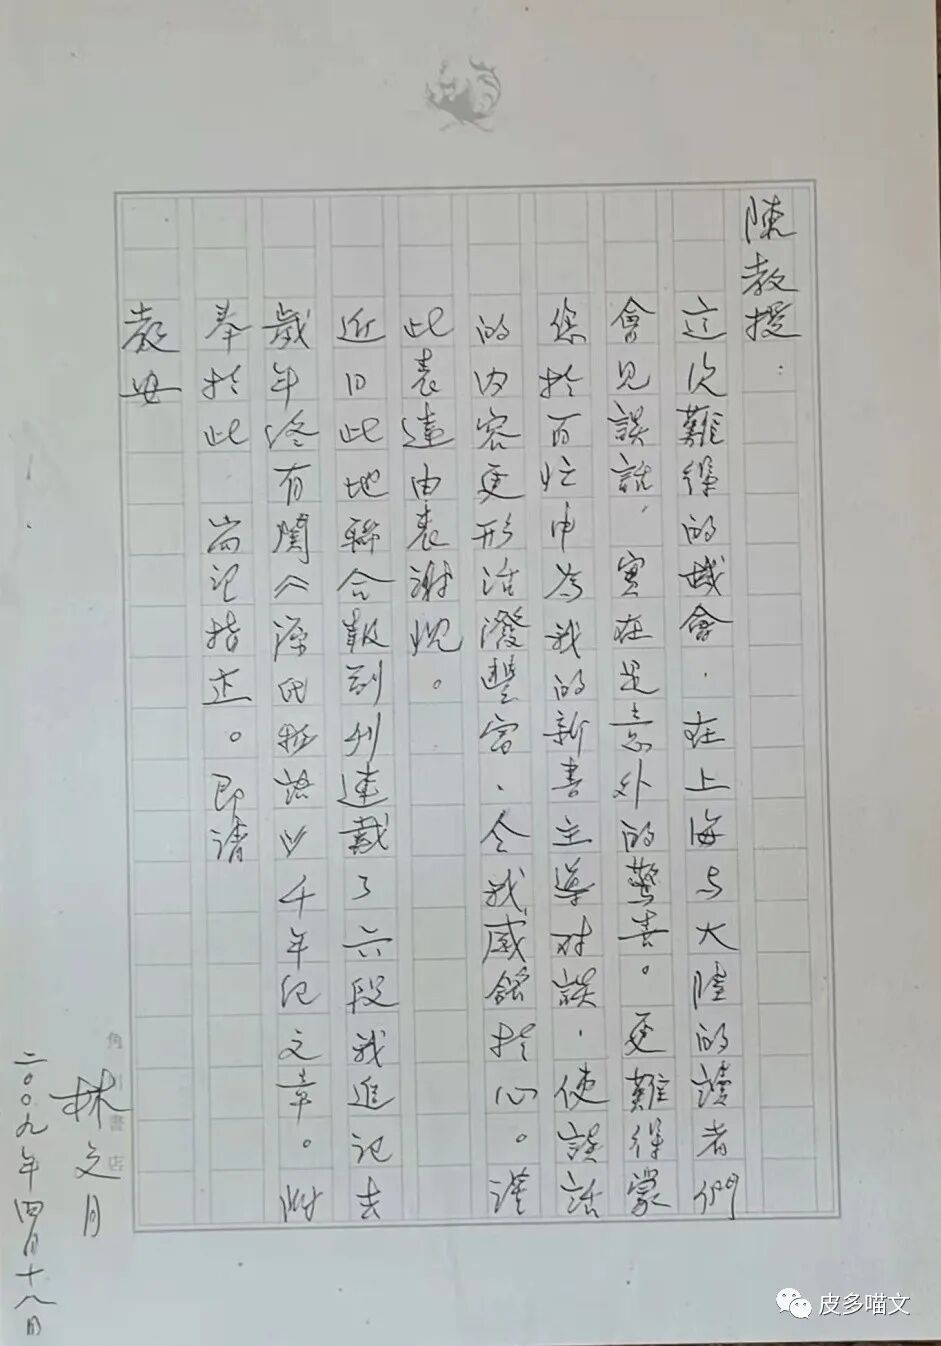 陳教授：
這次難得的機會，在上海與大陸的讀者們
會見談話，實在是意外的驚喜。更難得蒙
您於百忙中為我的新書主導對談，使談話
的內容更形活潑豐富，令我感銘於心。謹
此表達由衷謝忱。
近日此地聯合報副刊連載了六段我追記去
歲年終有關《源氏物語》千年紀文章。附
奉於此　尚祈指正。即請
教安
林文月
二〇〇九年四月十八日
角川書店
皮多喵文